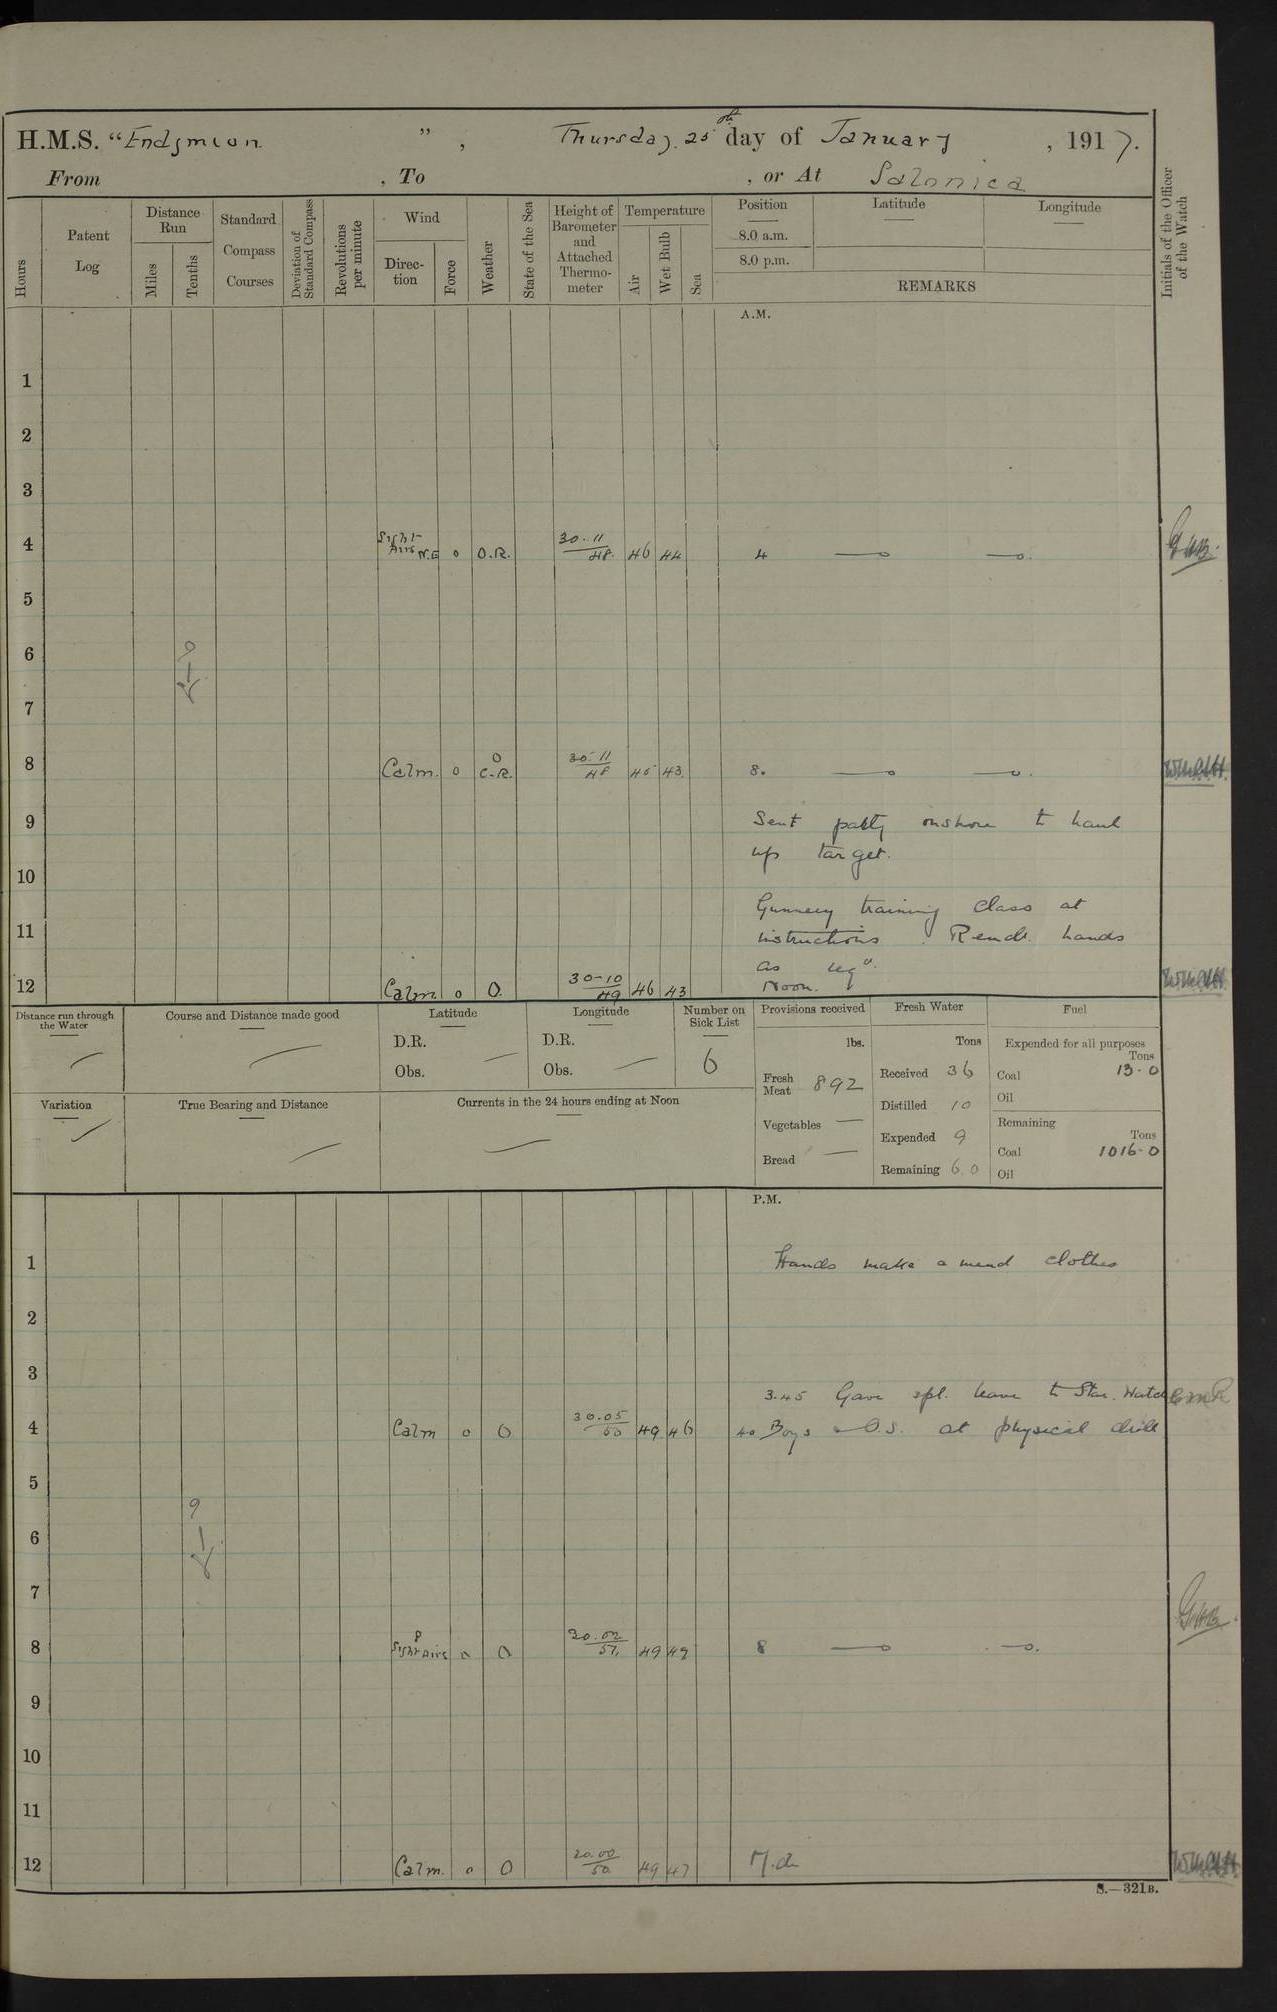 H.M.S. "Endymion ", Thursday. 25th day of January , 1917.
From , To , or At Salonica
Hours
Patent Log
Distance Run
Miles
Tenths
Standard Compass Courses
Deviation of Standard Compass
Revolutions per minute
Wind
Direction
Force
Weather
State of the Sea
Height of Barometer and Attached Thermometer
Temperature
Air
Wet Bulb
Sea
Position
8.0 a.m.
8.0 p.m.
Latitude
Longitude
REMARKS
Initials of the Officer of the Watch
A.M.
1
2
3
4 Light Airs N.E 0 O.R. 30.11 48. 46 44 4
5
6
7
8 Calm. 0 O C.R. 30.11 48 45 43 8.
9 Sent party onshore to haul
up target.
10
Gunnery training class at
11 instructions. Remdr. hands
as reqd.
12 Calm 0 O. 30-10 49 46 43 Noon.
Distance run through the Water
Course and Distance made good
Latitude
D.R.
Obs.
Longitude
D.R.
Obs.
Number on Sick List
6
Provisions received
lbs.
Fresh Meat 892
Vegetables —
Bread —
Fresh Water
Tons
Received 36
Distilled 10
Expended 9
Remaining 60
Fuel
Expended for all purposes
Tons
Coal 13-0
Oil
Remaining
Tons
Coal 1016-0
Oil
Variation
True Bearing and Distance
Currents in the 24 hours ending at Noon
P.M.
1 Hands make & mend clothes
2
3
3.45 Gave spl. leave to Star. Watch
4 Calm 0 O 30.05 50 49 46 40 Boys & O.S. at physical drill
5
6
7
8 Light Airs 0 O 30.02 51. 49 49 8
9
10
11
12 Calm. 0 O 30.00 50. 49 47 M.d.
S.—321B.